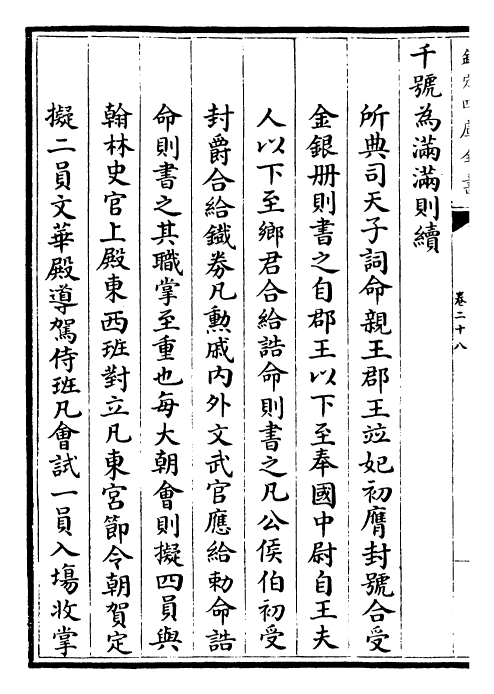 欽定四庫全書
卷二十八
千號為滿滿則續
所典司天子詞命親王郡王並妃初膺封號合受
金銀册則書之自郡王以下至奉國中尉自王夫
人以下至鄉君合給誥命則書之凡公侯伯初受
封爵合給鐵券凡勲戚内外文武官應給勅命誥
命則書之其職掌至重也每大朝會則擬四員與
翰林史官上殿東西班對立凡東宮節令朝賀定
擬二員文華殿導駕侍班凡會試一員入塲收掌